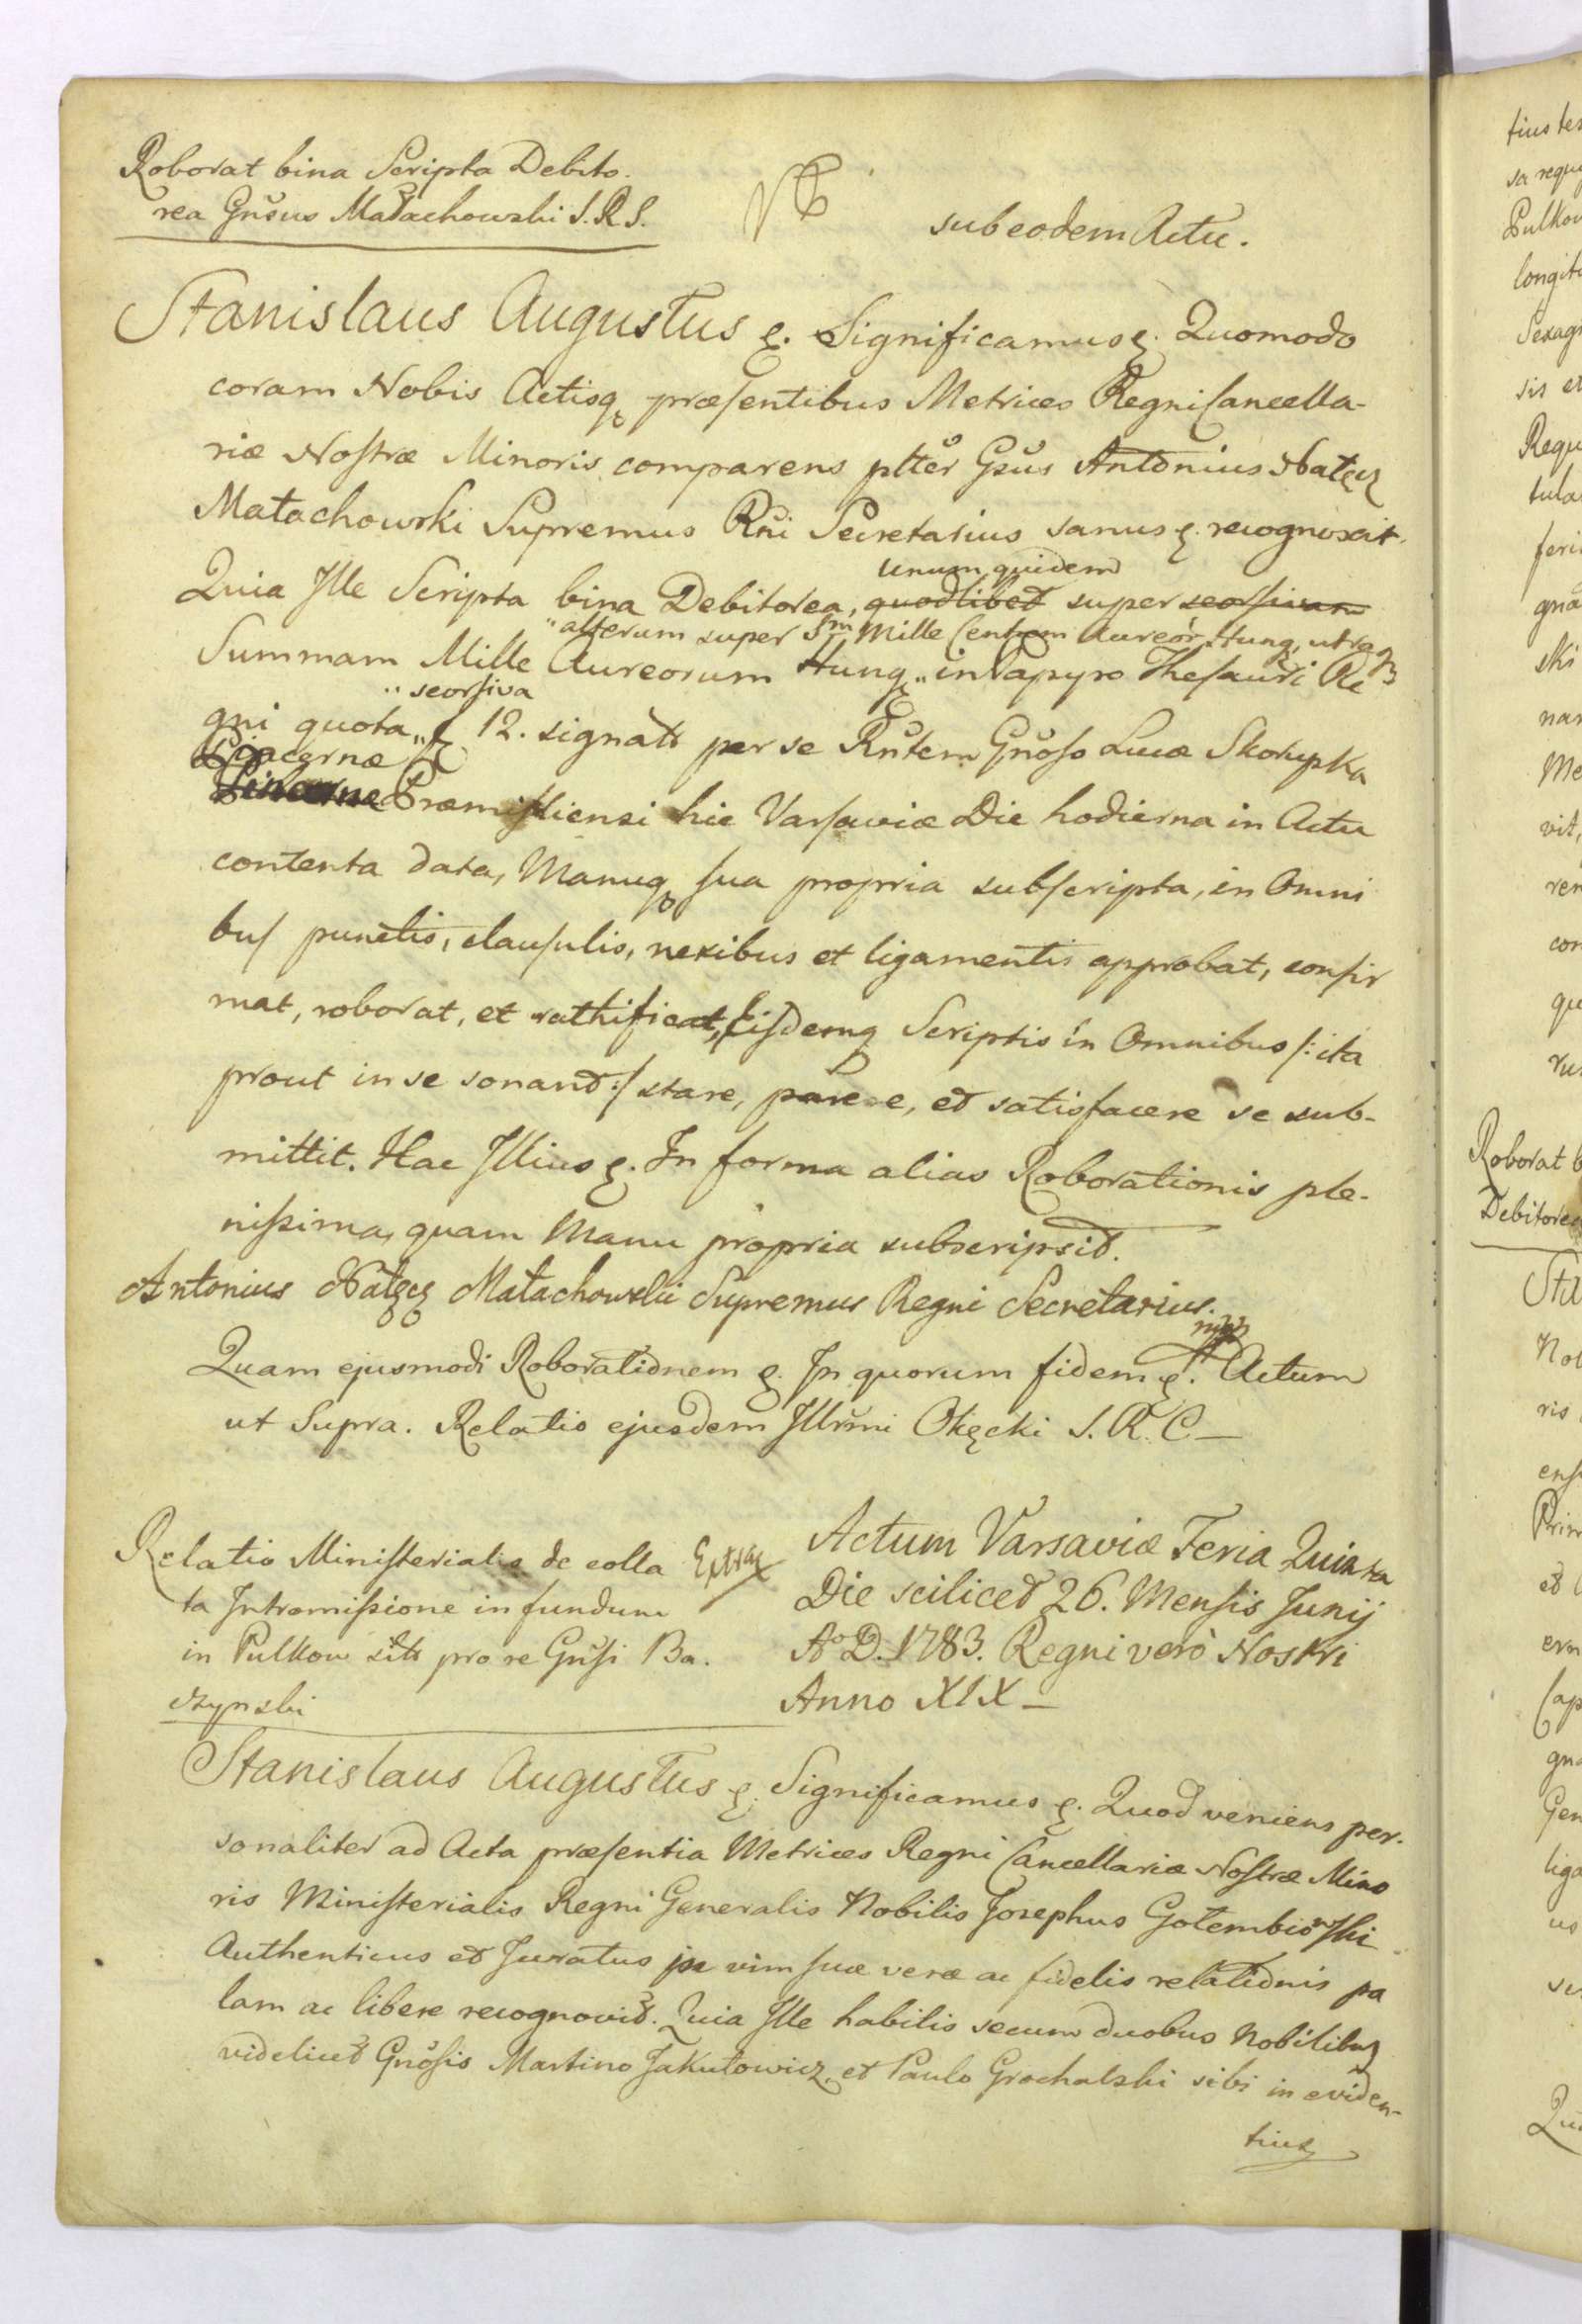 Roborat bina Scripta Debito.
rea Gnsus Małachowski S. R. S.
sub eodem Actu.
Stanislaus Augustus &. Significamus &. Quomodo
coram Nobis Actisq præsentibus Metrices Regni Cancella-
riæ Nostræ Minoris comparens plter Gsus Antonius Nałęcz
Małachowski Supremus Rni Secretarius sanus &. recognoscit.
unum quidem
Quia Ille Scripta bina Debitorea, quodlibet super seorsivam
alterum super Sm Mille Centum Aureor. Hung, utraq
Summam Mille Aureorum Hung " in Papyro Thesauri Re
" seorsiva
gni quota " f 12. signatt per se Rntem Gnoso Lucæ Skorupka
Pincernæ
Præmisliensi hic Varsaviæ Die hodierna in Actu
contenta data, Manuq sua propria subscripta, in Omni
bus punctis, clausulis, nexibus et ligamentis approbat, confir
mat, roborat, et rathificat, Eisdemq Scriptis in Omnibus /: ita
prout in se sonant :/ stare, parere, et satisfacere se sub-
mittit. Hac Illius &. In forma alias Roborationis ple-
nissima, quam Manu propria subscripsit.
Antonius Nałęcz Małachowski Supremus Regni Secretarius.
mpp
Quam ejusmodi Roborationem &. In quorum fidem &. Actum
ut Supra. Relatio ejusdem Illrmi Okęcki S. R. C
Relatio Ministerialis de colla
ta Intromissione in fundum
in Pulkow sitt pro re Gnsi Ba.
czynski
Extrax
Actum Varsaviæ Feria Quinta
Die scilicet 26. Mensis Junij
Ao D. 1783. Regni verò Nostri
Anno XIX
Stanislaus Augustus &. Significamus &. Quod veniens per.
sonaliter ad Acta præsentia Metrices Regni Cancellariæ Nostræ Mino
ris Ministerialis Regni Generalis Nobilis Josephus Gołembiowski
Authenticus et Juratus in vim suæ veræ ac fidelis relationis pa
lam ac libere recognovit. Quia Ille habitis secum duobus Nobilibus
videlicet Gnosis Martino Jakutowicz et Paulo Grochalski sibi in eviden-
tius